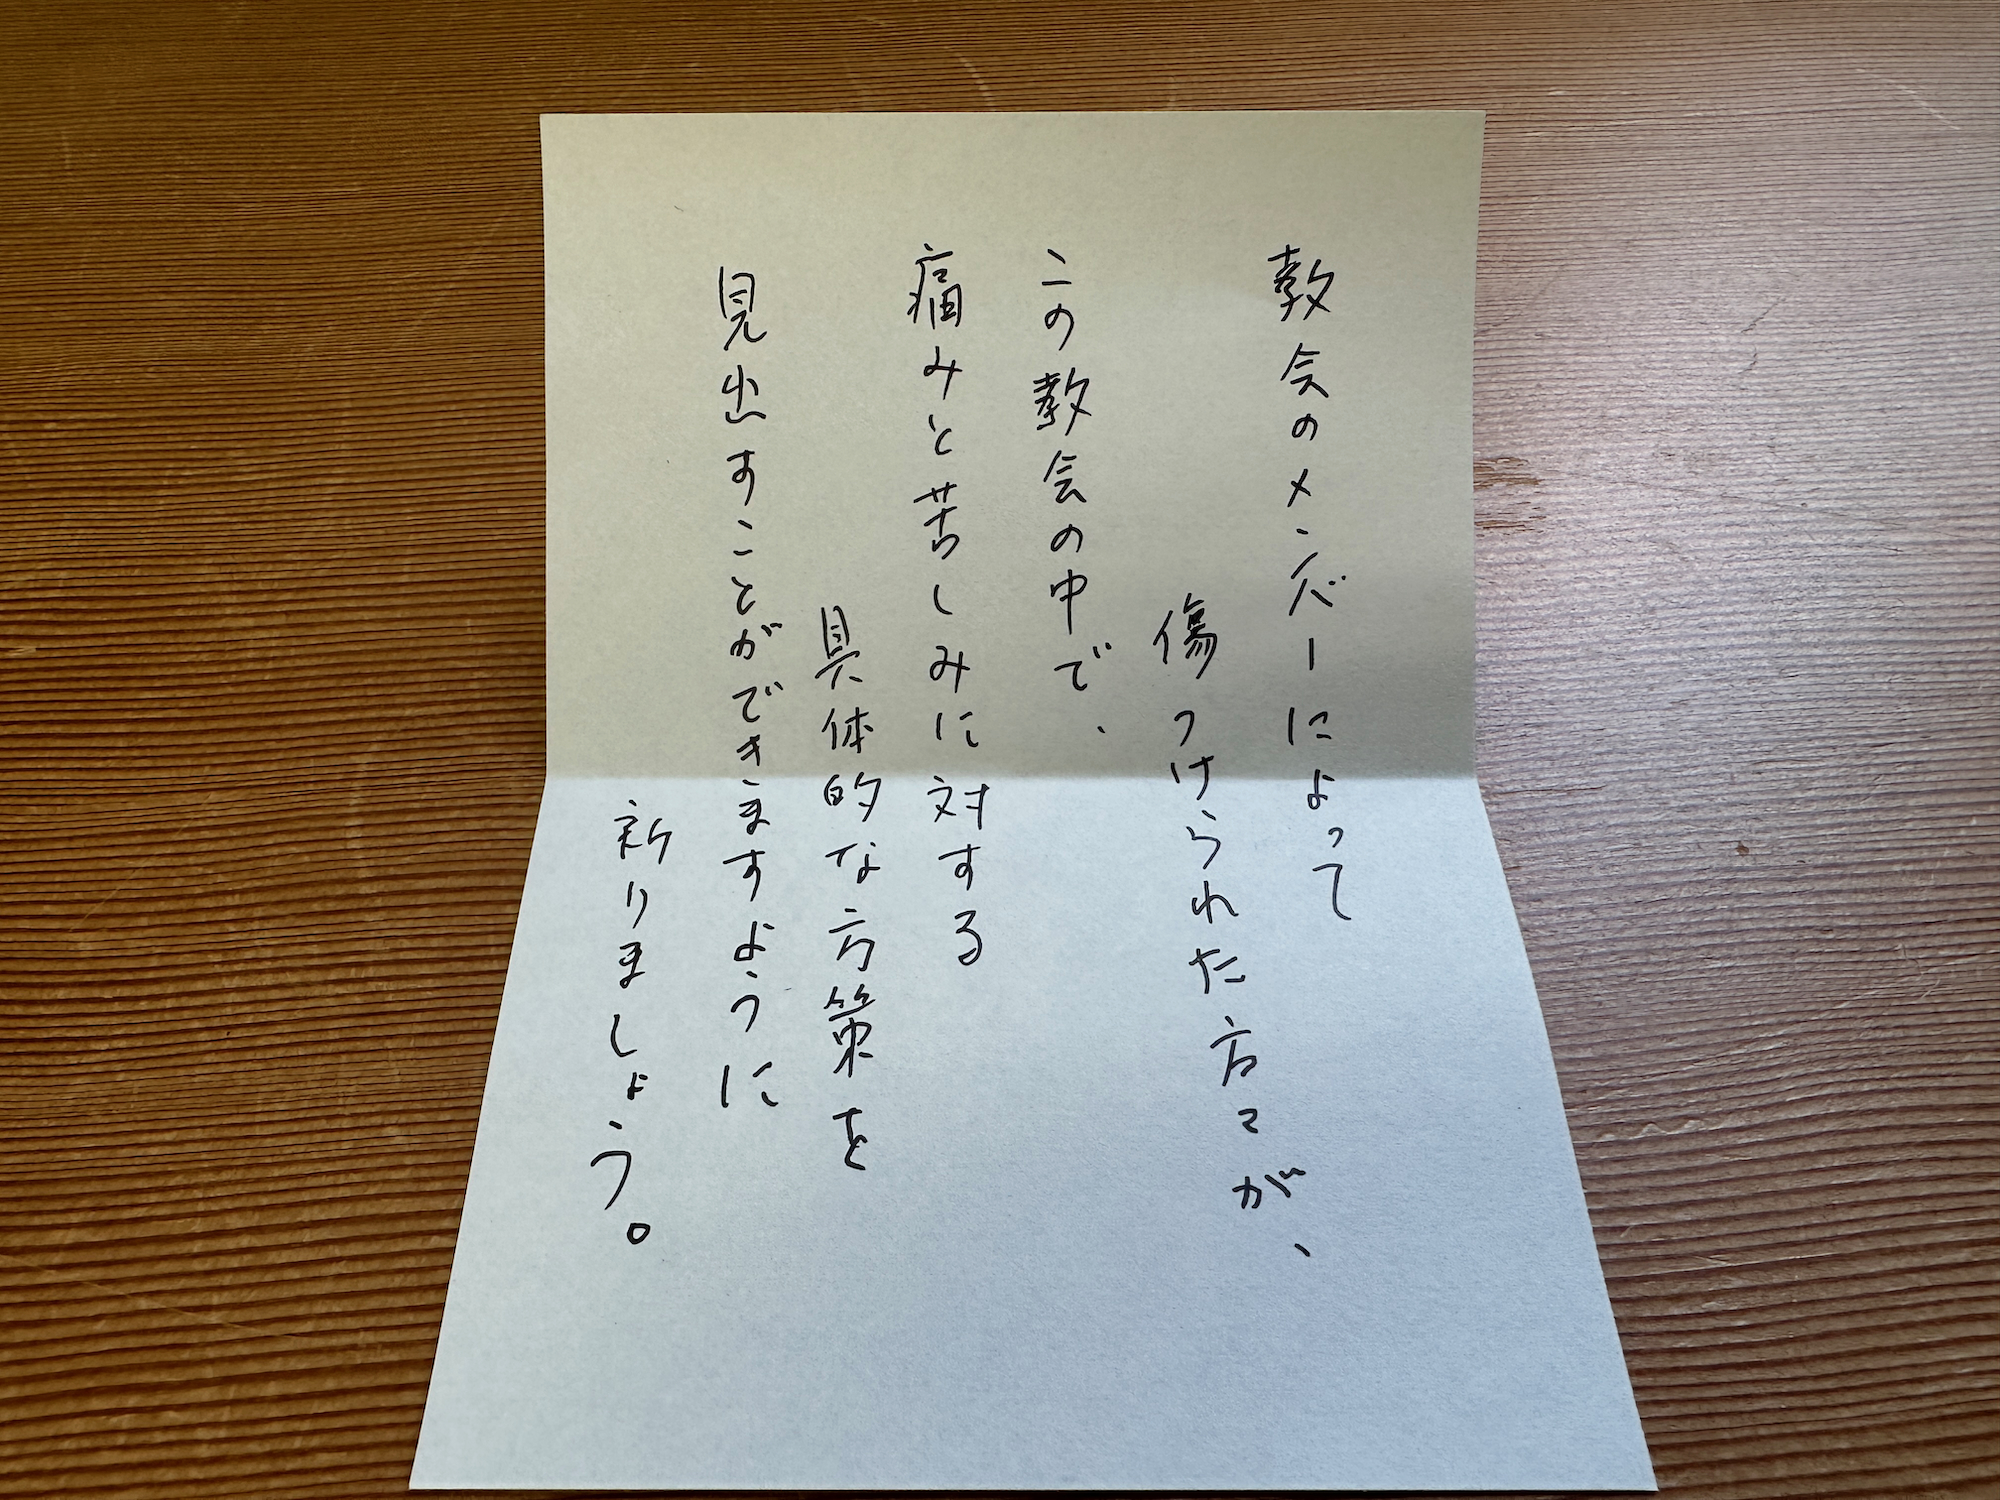 教会のメンバーによって
傷つけられた方々が、
この教会の中で、
痛みと苦しみに対する
具体的な方策を
見出すことができますように
祈りましょう。